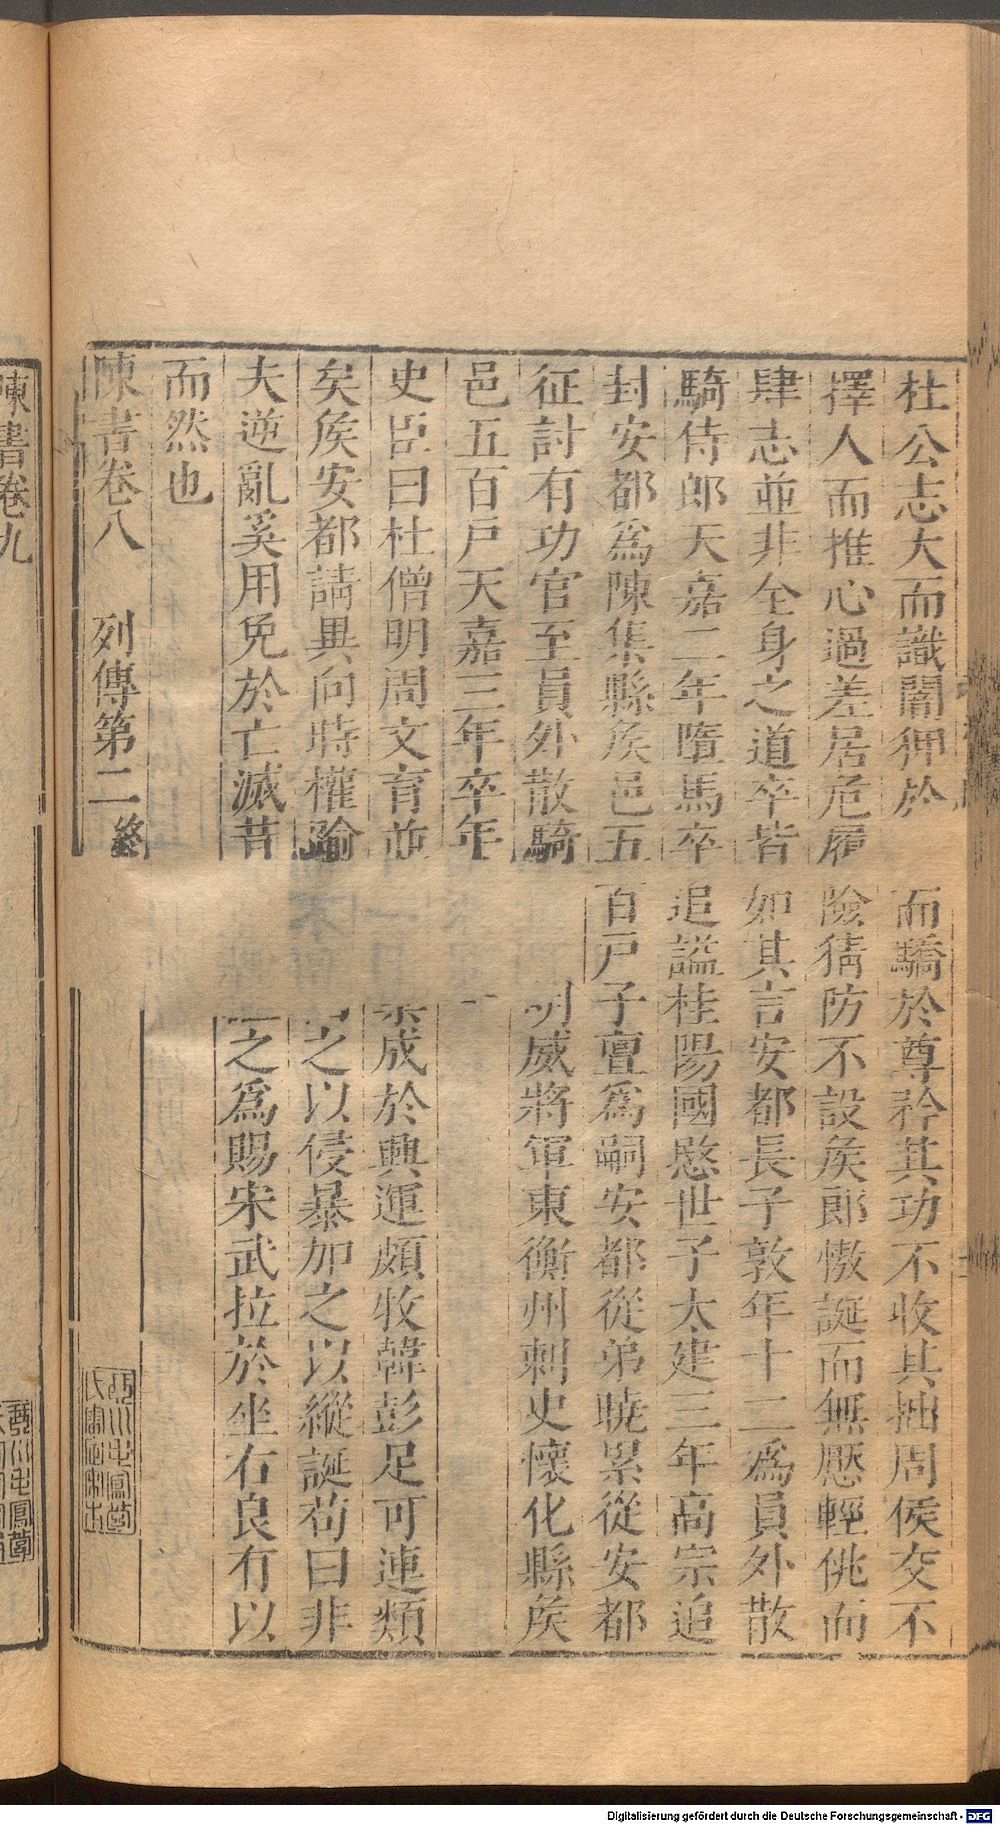 杜公志大而識闇狎於而驕於尊矜其功不收其拙周侯交不
擇人而推心過差居危履險猜防不設矦郎慠誕而無厭輕佻而
肆志並非全身之道卒皆如其言安都長子敦年十二爲員外散
騎侍郎天嘉二年墮馬卒追謚桂陽國愍世子太建三年高宗追
封安都爲陳集縣矦邑五百戸子亶爲嗣安都從弟曉累從安都
征討有功官至員外散騎明威將軍東衡州刺史懷化縣矦
邑五百戸天嘉三年卒年
史臣曰杜僧明周文育並業成於興運頗牧韓彭足可連類
矣矦安都請異向時權踰之以侵暴加之以縱誕苟曰非
夫逆亂奚用免於亡滅昔之爲賜宋武拉於坐右良有以
而然也
陳書卷八 列傳第二 終
陳書卷九
Digitalisierung gefördert durch die Deutsche Forschungsgemeinschaft - DFG